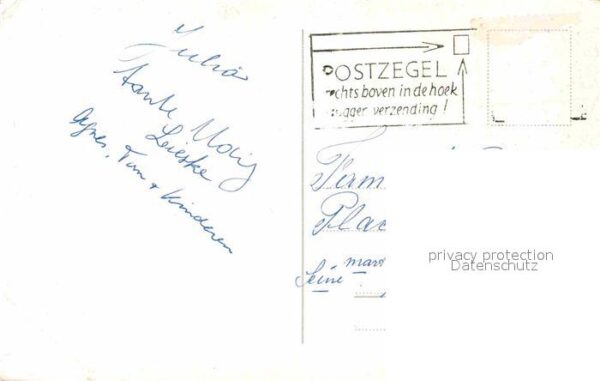 Julia
Tante
Lieske
Agnes, Tim + Kinderen
POSTZEGEL
chts boven in de hoek
ugger verzending!
Ferm
Plac
mar
Seine
privacy protection
Datenschutz